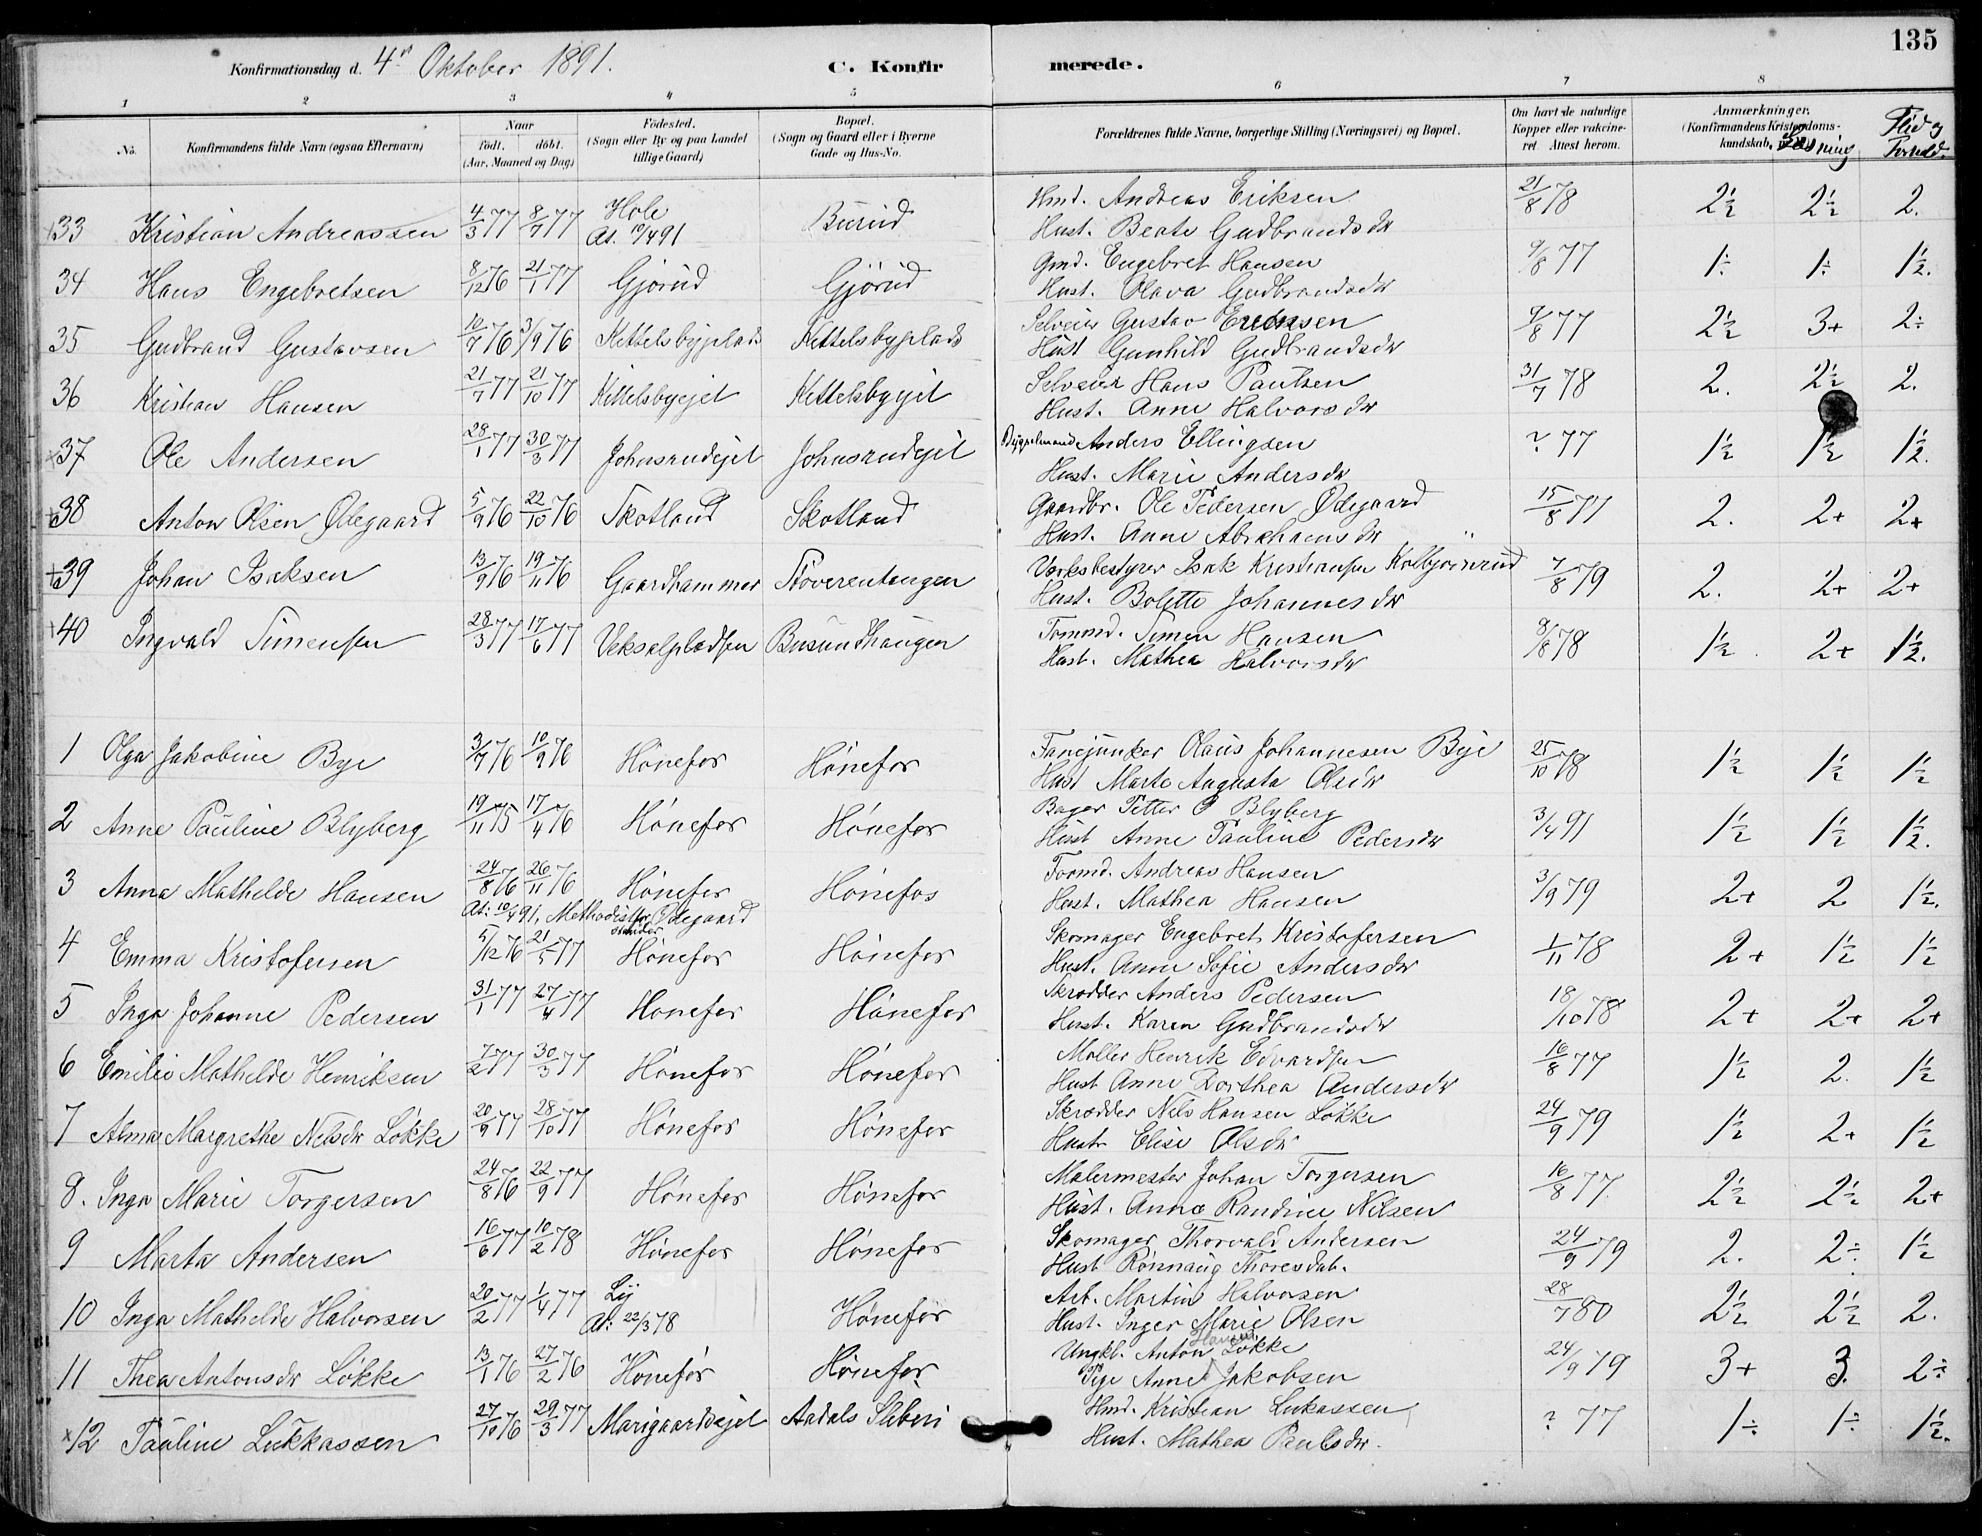 135
Konfirmationsdag d. 4de Oktober 1891. C. Konfirmerede.
1 2 3 4 5 6 7 8
No. Konfirmandens fulde Navn (ogsaa Efternavn) Naar født. døbt. (Aar, Maaned og Dag) Fødested. (Sogn eller By og paa Landet tillige Gaard) Bopæl. (Sogn og Gaard eller i Byerne Gade og Hus-No. Forældrenes fulde Navne, borgerlige Stilling (Næringsvei) og Bopæl. Om havt de naturlige Kopper eller vaccineret Attest herom. Anmærkninger. (Konfirmandens Kristendomskundskab, Læsning Flid og Forhold.
33 Kristian Andreassen 4/3 77 8/7 77 Hole At. 10/4 91 Burud Hmd. Andreas Eriksen 21/8 78 2½ 2½ 2.
Hust. Beate Gudbrandsdr
34 Hans Engebretsen 8/12 76 21/1 77 Gjørud Gjørud Gmd. Engebret Hansen 9/8 77 1÷ 1÷ 1½.
Hust. Olava Gudbrandsdr
35 Gudbrand Gustavsen 10/7 76 3/9 76 Kittelsbyplads Kittelsbyplads Selveier Gustav Eriksen 9/8 77 2½ 3+ 2÷
Hust Gunhild Gudbrandsdr
36 Kristian Hansen 21/7 77 21/10 77 Kittelsbyejet Kittelsbyejet Selveier Hans Paulsen 31/7 78 2. 2½ 2.
Hust. Anne Halvorsdr
37 Ole Andersen 28/1 77 30/3 77 Johnsrudejet Johnsrudejet Anders Ellingsen ? 77 1½ 1½ 1½.
Hust. Marie Andersdr
38 Anton Olsen Ødegaard 5/9 76 22/10 76 Skotland Skotland Gaardbr. Ole Pedersen Ødegaard 15/8 77 2. 2+ 2+
Hust. Anne Abrahamsdr
39 Johan Isaksen 13/9 76 19/11 76 Gaardhammer Støverentangen Værksbestyrer Isak Kristiansen Kolbjørnrud 7/8 79 2. 2+ 2+
Hust. Bolette Johannesdr
40 Ingvald Simensen 28/3 77 17/6 77 Veksalpladsen Busundhaugen Tømmd. Simen Hansen 8/8 78 1½ 2+ 1½.
Hust. Mathea Halvorsdr
1 Olga Jakobine Bye 3/7 76 10/9 76 Hønefos Hønefos Fanejunker Olaus Johannesen Bye 25/10 78 1½ 1½ 1½
Hust Marte Augusta Olsdr
2 Anne Pauline Blyberg 19/11 75 17/4 76 Hønefos Hønefos Bager Petter P Blyberg 3/4 91 1½ 1½ 1½.
Hust Anne Pauline Pedersdr
3 Anna Mathelde Hansen 24/8 76 26/11 76 Hønefos Hønefos Tomd. Andreas Hansen 3/9 79 2+ 2 1½.
At: 10/4 91. Methodistfor stander Ødegaard Hust. Mathea Hansen
4 Emma Kristofersen 5/12 76 21/5 77 Hønefos Hønefos Skomager Engebret Kristofersen 1/11 78 2+ 1½ 1½
Hust. Anne Sofie Andersdr
5 Inga Johanne Pedersen 31/1 77 27/4 77 Hønefos Hønefos Skrædder Anders Pedersen 18/10 78 2+ 2+ 2+
Hust. Karen Gudbrandsdr
6 Emilie Mathelde Henriksen 7/2 77 30/3 77 Hønefos Hønefos Møller Henrik Edvardsen 16/8 77 1½ 2. 1½
Hust Anne Dorthea Andersdr
7 Alma Margrethe Nelsdr Løkke 20/9 77 28/10 77 Hønefos Hønefos Skrædder Nels Hansen Løkke 24/9 79 1½ 2+ 1½
Hust Elise Olsdr
8. Inga Marie Torgersen 24/8 76 22/9 77 Hønefos Hønefos Malermester Johan Torgersen 16/8 77. 2½ 2½ 2+
Hust. Anna Randine Nilsen
9 Marta Andersen 16/6 77 10/2 78 Hønefos Hønefos Skomager Thorvald Andersen 24/9 79 2. 2÷ 1½
Hust Rønnaug Thoresdat.
10 Inga Mathelde Halvorsen 20/2 77 1/4 77 At: 22/3 78 Hønefos Arb. Martin Halvorsen 28/7 80 2½ 2½ 2.
Hust. Inger Marie Olsen
11 Thea Antonsdr Løkke 13/1 76 27/2 76 Hønefos Hønefos Ungkl. Anton Hansen Løkke 24/9 79 3+ 3. 2÷
Pige Anne Jakobsen
12 Pauline Lukkassen 27/10 76 29/3 77 Marigaardsejet Aadals Sliberi Hmd. Kristian Lukassen ? 77 1÷ 1÷ 1½.
Hust. Mathea Paulsdr.